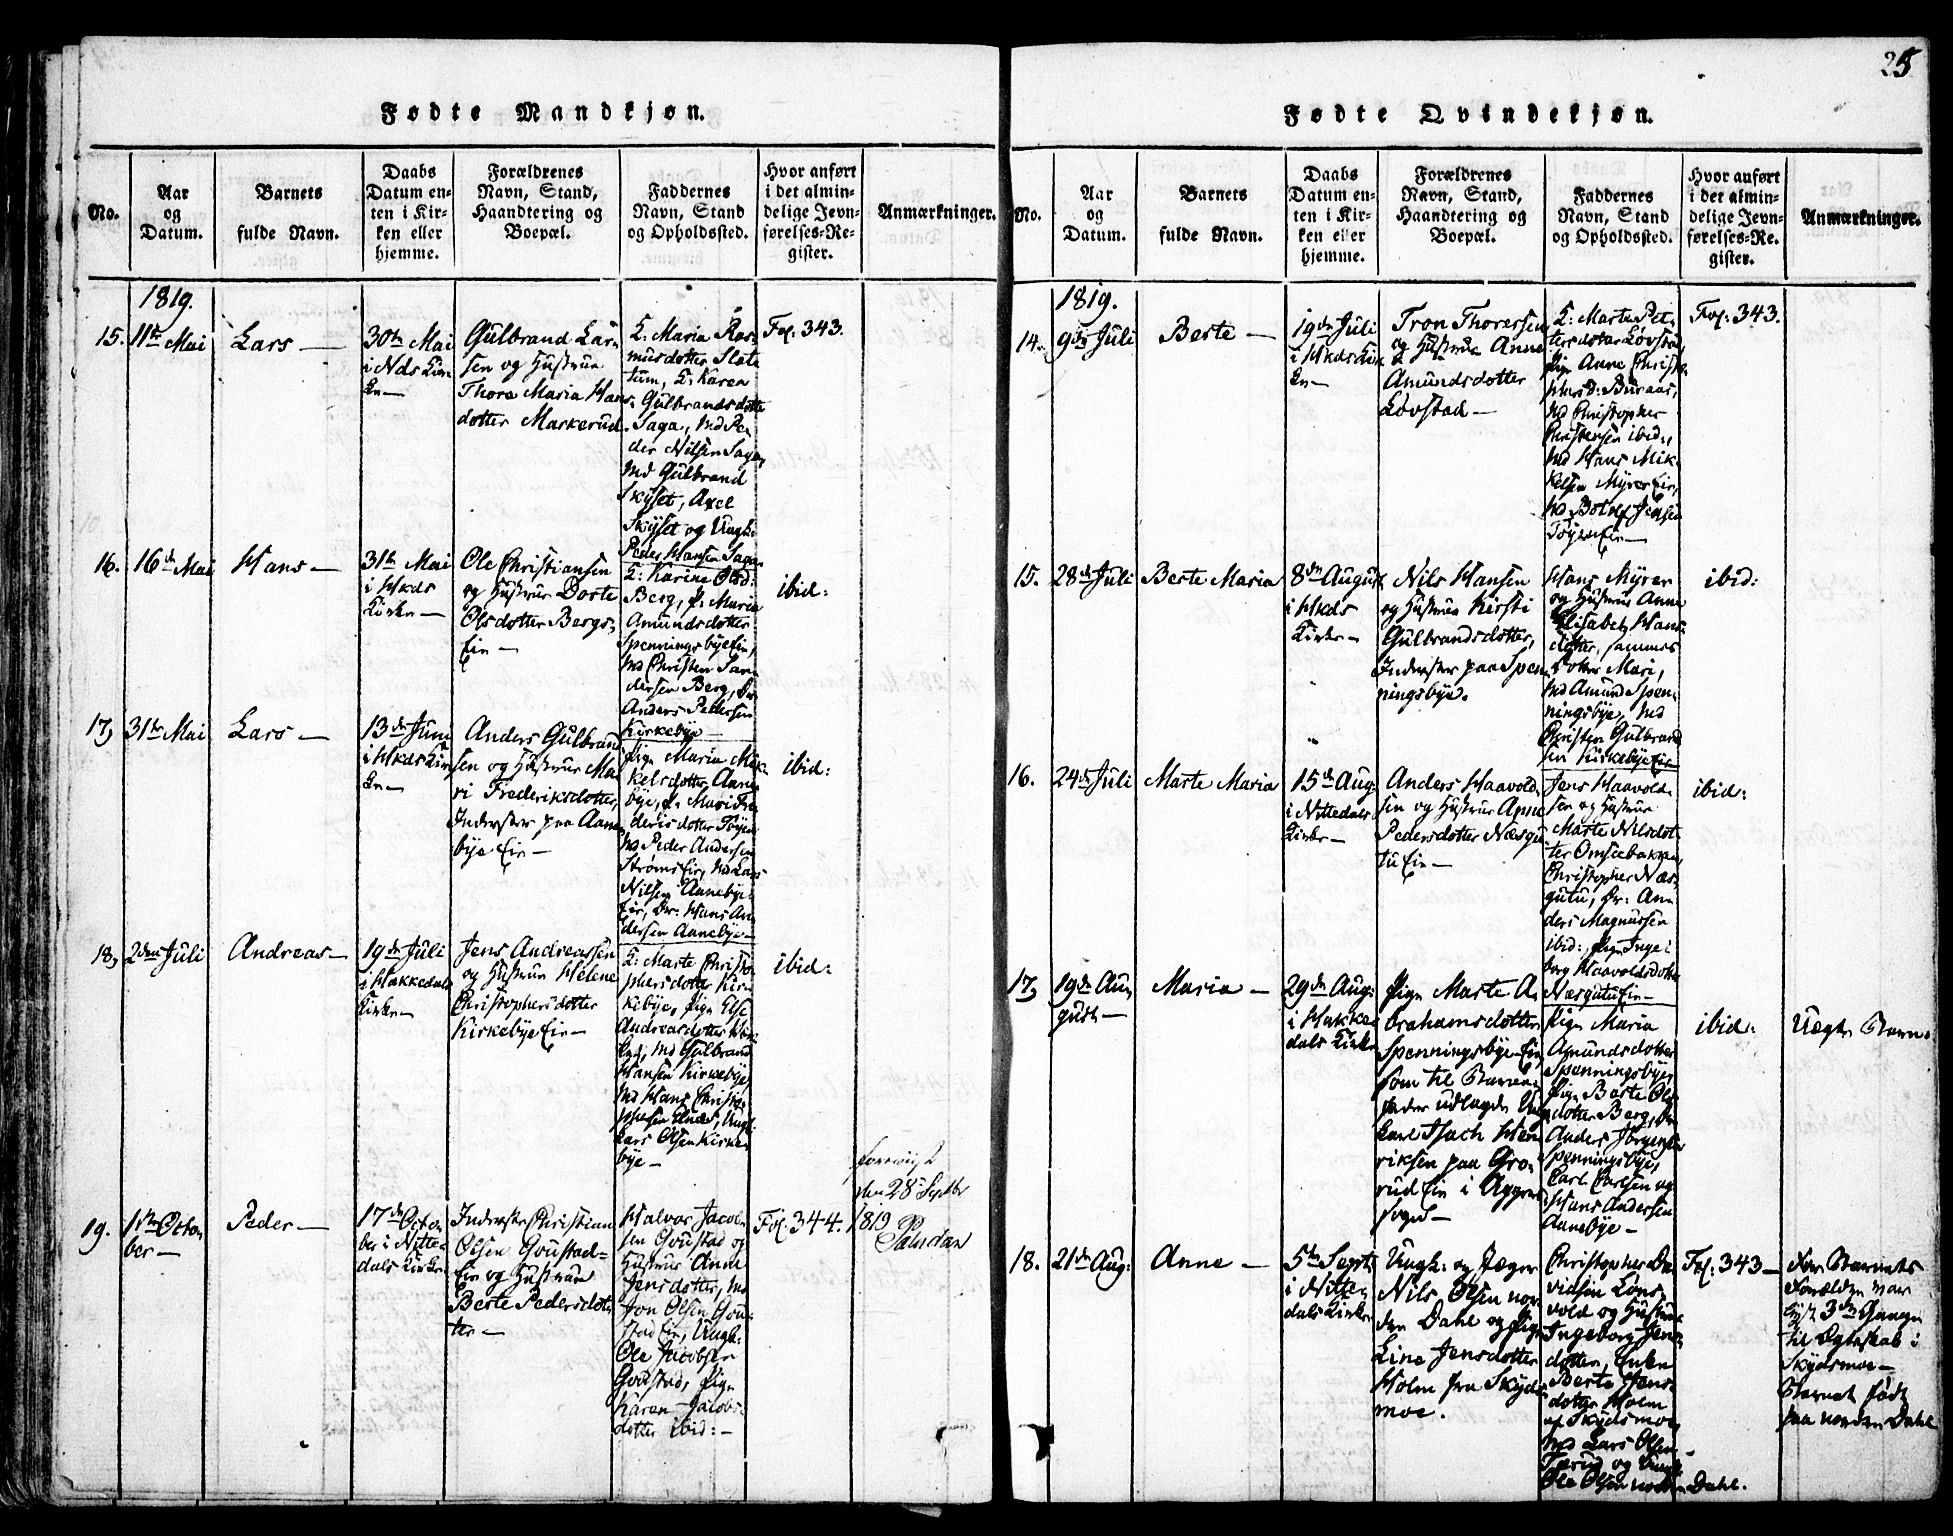 25
Fødte Mandkjøn.
No.
Aar
og
Datum.
Barnets
fulde Navn.
Daabs
Datum en-
ten i Kir-
ken eller
hjemme.
Forældrenes
Navn, Stand,
Haandtering og
Boepæl.
Faddernes
Navn, Stand
og Opholdssted.
Hvor anført
i det almin-
delige Jevn-
førelses-Re-
gister.
Anmærkninger.
1819.
15.
11te Mai
Lars
30te Mai
i Nds Kir-
ke
Gulbrand Lar-
sen og Hustrue
Thore Maria Hans-
dotter Markerud
K: Maria Ras-
musdotter Slat-
tum, K: Karen
Gulbrandsdotter
Saga, Md Pe-
der Nilsen Saga,
Md Gulbrand
Skyset, Axel
Skyset og Ungk:
Peder Hansen Saga
Fol. 343.
16.
16de Mai
Hans
31te Mai
i Hkds
Kirke
Ole Christiansen
og Hustrue Dorte
Olsdotter Bergs-
Eie
K: Karine
Berg, P. Maria
Amundsdotter
Spenningsbye Eie,
Md Christen
dersen Berg,
Anders Pettersen
Kirkebye
ibid:
17,
31te Mai
Lars
13de Juni
i Hkds Kir-
ke
Anders Gulbrand-
sen og Hustrue Ma-
ri Frederiksdotter,
Inderster paa Aane-
bye Eie
Pige Maria Mik-
kelsdotter Aane-
bye, P. Mari Fre-
deriksdotter Tøyen
Md Peder Andersen
Strøms Eie, Md Lars
Nilsen Aanebye-
Eie, Dr: Hans An-
dersen Aanebye
ibid:
18,
2den Juli
Andreas
19de Juli
i Hakkedals
Kirke
Jens Andreassen
og Hustrue Helene
Christophersdotter
Kirkebye Eie
K: Marte Christo-
phersdotter Kir-
kebye, Pige Else
Andreasdotter
Md Gulbrand
Hansen Kirkebye,
Md Hans Christo-
phersen Ungk:
Lars Olsen Kirke-
bye
ibid:
19.
1ste Octo-
ber
Peder
17de Octo-
ber i Nitte-
dals Kirke
Inderster Christian
Olsen Goustad-
Eie og Hustrue
Berte Pedersdot-
ter
Halvor Jacob-
sen Goustad og
Hustrue Anne
Jensdotter, Md
Jon Olsen Gou-
stad Eie, Ungk:
Ole Jacobsen
Goustad, Pige
Karen Jacobs-
dotter ibid:
Fol. 344.
foreviist
den 28 Septbr
1819
Fødte Qvindekjøn.
No.
Aar
og
Datum.
Barnets
fulde Navn.
Daabs
Datum en-
ten i Kir-
ken eller
hjemme.
Forældrenes
Navn, Stand,
Haandtering og
Boepæl.
Faddernes
Navn, Stand
og Opholdssted.
Hvor anført
i det almin-
delige Jevn-
førelses-Re-
gister.
Anmærkninger.
1819.
14.
9de Juli
Berte
19de Juli
i Hkds Kir-
ke
Tron Thoressen
og Hustrue Anne
Amundsdotter
Løvstad
K: Marte Pet-
tersdotter Løvstad
Pige Anne Christo-
phersd: Buraas,
Md Christopher
Christensen ibid:,
Md Hans Mik-
kelsen Myrer Eie,
Md Jensen
Tøyen Eie
Fol. 343.
15.
28de Juli
Berte Maria
8de August
i Hkds
Kirke
Nils Hansen
og Hustrue Kirsti
Gulbrandsdotter,
Inderster paa Spen-
ningsbye.
Hans Myrer
og Hustrue Anne
Elisabeth Hans-
dotter, sammes
Dotter Mari,
Md Amund Spen-
ningsbye, Md
Christen Gulbrand-
sen Kirkebye Eie
ibid:
16.
24de Juli
Marte Maria
15de Aug:
i Nittedals
Kirke
Anders Haavold-
sen og Hustrue Anne
Pedersdotter Næsgu-
tu Eie
Jens Haavold-
sen og Hustrue
Marte Nilsdot-
ter
Christopher Næs-
gutu, Dr: An-
ders Magnussen
ibid:, Pige Inge-
borg Haavoldsdotter
Næsgutu Eie
ibid:
17,
19de Au-
gust
Maria
29de Aug:
i Hakke-
dals Kirke
Pige Marte A-
brahamsdotter
Spenningsbye Eie
som til Barne-
fader udlagde Ung-
karl Isach Hen-
riksen paa Gro-
rud Eie i Aggers
Sogn
Pige Maria
Amundsdotter
Spenningsbye,
Pige Berte Ols-
dotter Berg, Dr
Anders Jørgensen
Spenningsbye,
Carl Carlsen og
Hans Andersen
Aanebye
ibid:
Uægte Barn.
18.
21de Aug:
Anne
5te Septr
i Nitte-
dals Kirke
Ungk: og Jæger
Nils Olsen nor-
den Dahl og Pige
Line Jensdotter
Holm fra Skyds-
moe.
Christopher Da-
vidsen Løns-
vold og Hustrue
Ingeborg Jens-
dotter, Enke
Berte Jens-
dotter Holm
af Skydsmoe,
Md Lars Olsen
Tærud og Ungk:
Ole Olsen norden Dahl.
Fol. 343
For Barnets
Forældre var
lyst 3de Gange
til Ægteskab i
Skydsmoe
Barnet født
paa norden Dahl